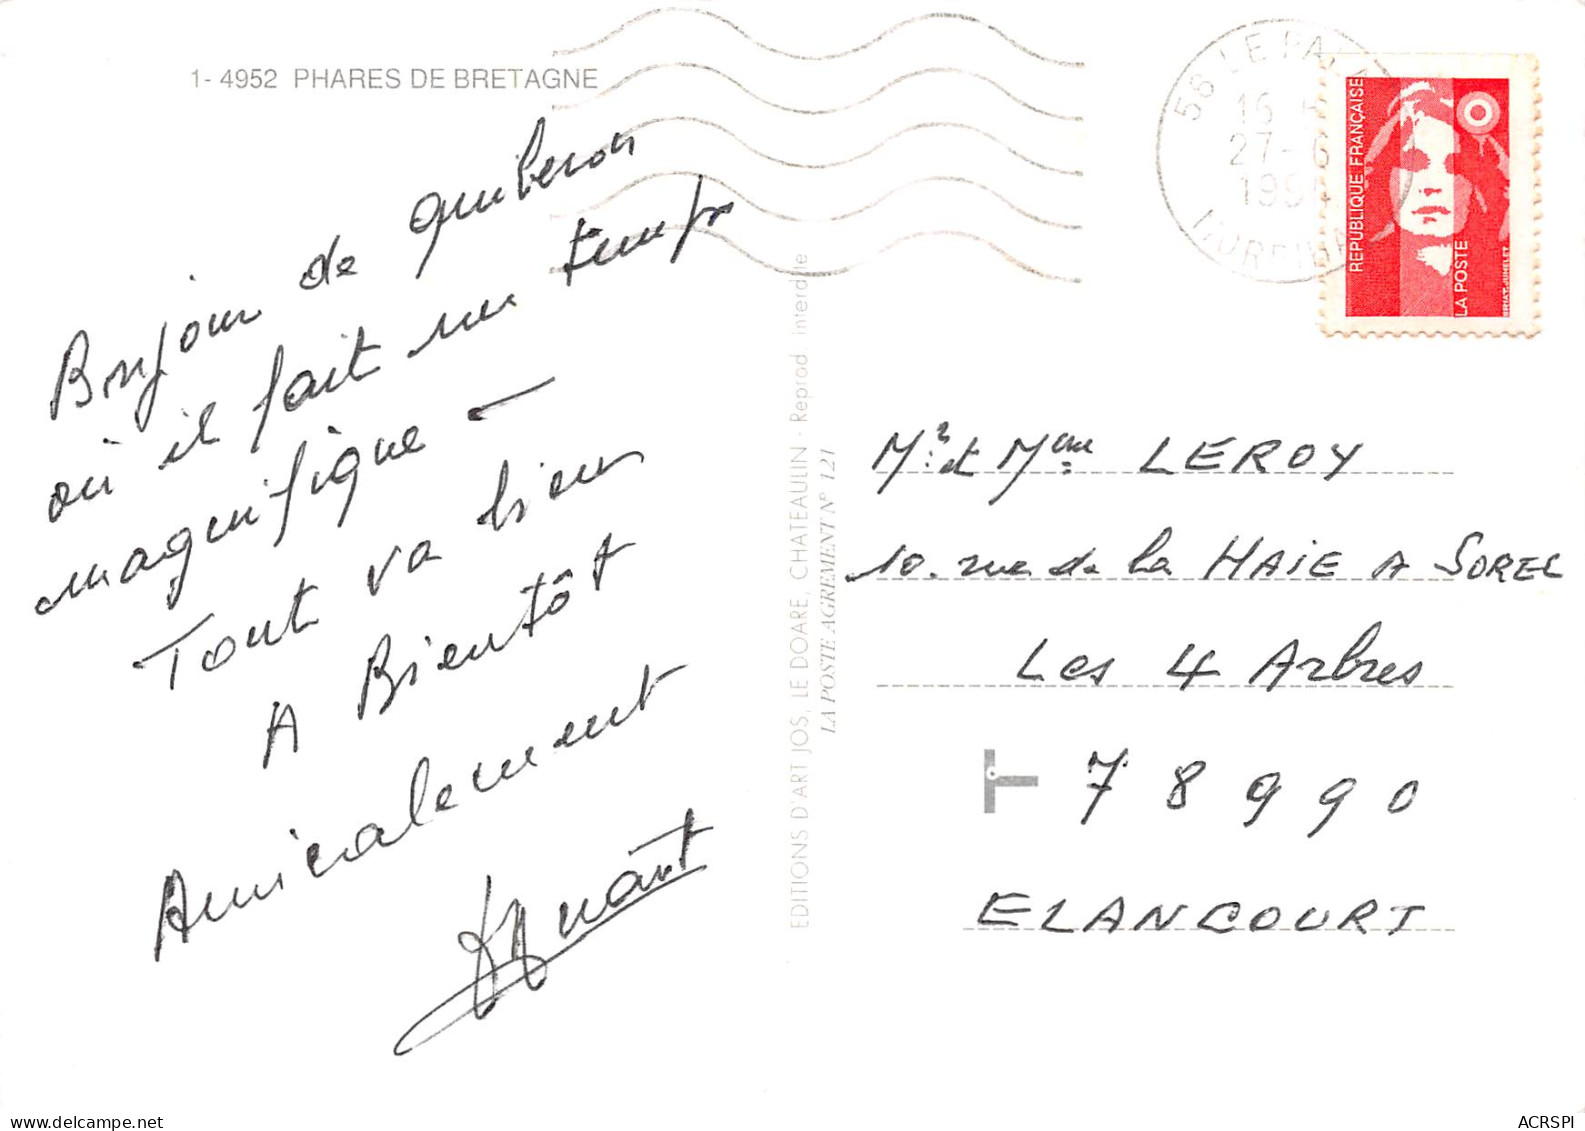 1- 4952 PHARES DE BRETAGNE
Bonjour de quiberon
où il fait un temps
magnifique —
Tout va bien
A Bientôt
Amicalement
EDITIONS D'ART JOS, LE DOARE, CHATEAULIN - Reprod. interdite
LA POSTE AGREMENT N° 121
56 LE PAL
16 H
27-6
199
MORBIHA
REPUBLIQUE FRANÇAISE
LA POSTE
BRIAT-JUMELET
Mr et Mme LEROY
10. rue de la HAIE A SOREL
Les 4 Arbres
78990
ELANCOURT
ACRSPI